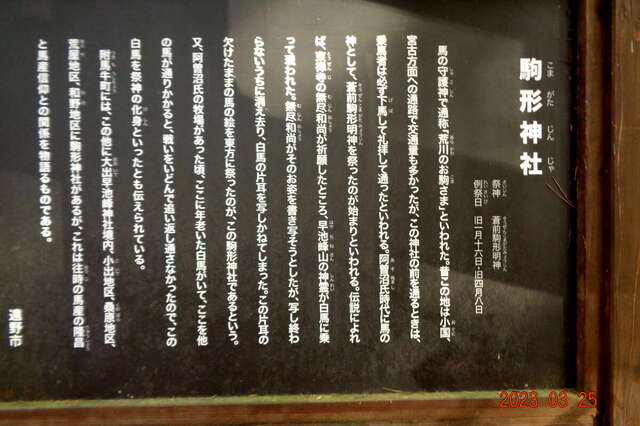 駒形神社
こまがたじんじゃ
祭神 蒼前駒形明神
例祭日 旧一月十六日・旧四月八日
馬の守護神で通称「荒川のお駒さま」といわれた。昔この地は小国、
宮古方面への通路で交通量も多かったが、この神社の前を通るときは、
乗馬者は必ず下馬して礼拝して通ったといわれる。阿曽沼氏時代に馬の
神として、蒼前駒形明神を祭ったのが始まりといわれる。伝説によれ
ば、東禅寺の無尽和尚が祈願したところ、早池峰山の神霊が白馬に乗
って現われた。無尽和尚がそのお姿を書き写そうとしたが、写し終わ
らないうちに消え去り、白馬の片耳を写しかねてしまった。この片耳の
欠けたままの馬の絵を東方に祭ったのが、この駒形神社であるという。
又、阿曽沼氏の牧場があった頃、ここに年老いた白馬がいて、ここを他
の馬が通りかかると、戦いをいどんで追い返し通さなかったので、この
白馬を祭神の化身といったとも伝えられている。
附馬牛町には、この他に大出早池峰神社境内、小出地区、桑原地区、
荒屋地区、和野地区に駒形神社があるが、これは往時の馬産の隆昌
と馬産信仰との関係を物語るものである。
遠野市
2023 03 25